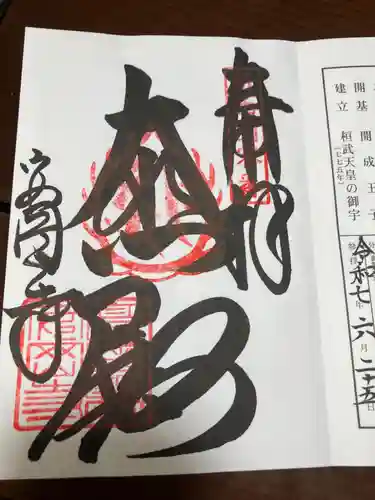 開基　開成王子
建立　桓武天皇の御宇
(七七五年)
令和七年六月二十五日
奉拝
大悲殿
安岡寺